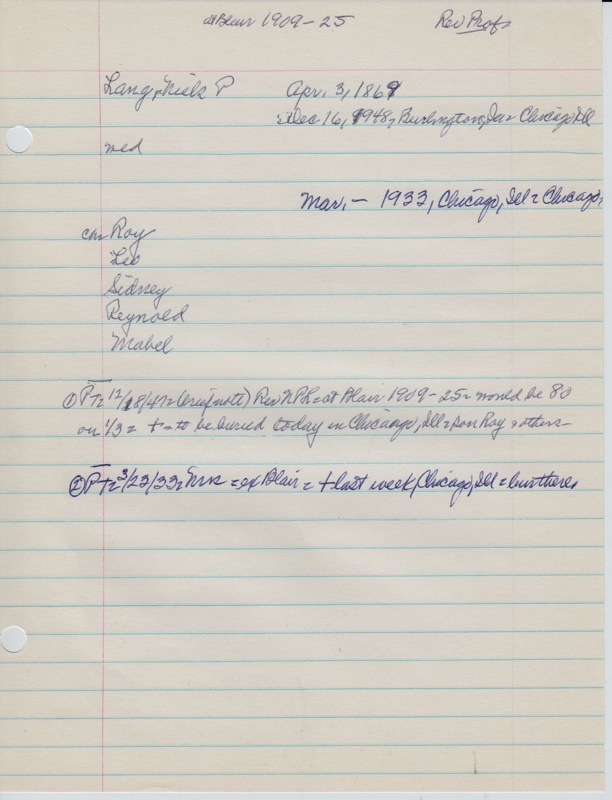 at Blair 1909-25 Rev Prof.
Lang, Niels P Apr. 3, 1869
Dec 16, 1948, Burlington, Ia = Chicago, Ill
wed
Mar, — 1933, Chicago, Ill = Chicago,
ch Roy
Leo
Sidney
Reynold
Mabel
① PT= 12/18/47= (brief note) Rev NPL = at Blair 1909-25 = would be 80
on 4/3 = + = to be buried today in Chicago, Ill = son Roy + others
② PT= 3/23/33 = Mrs = ex Blair = + last week, Chicago, Ill = bur there